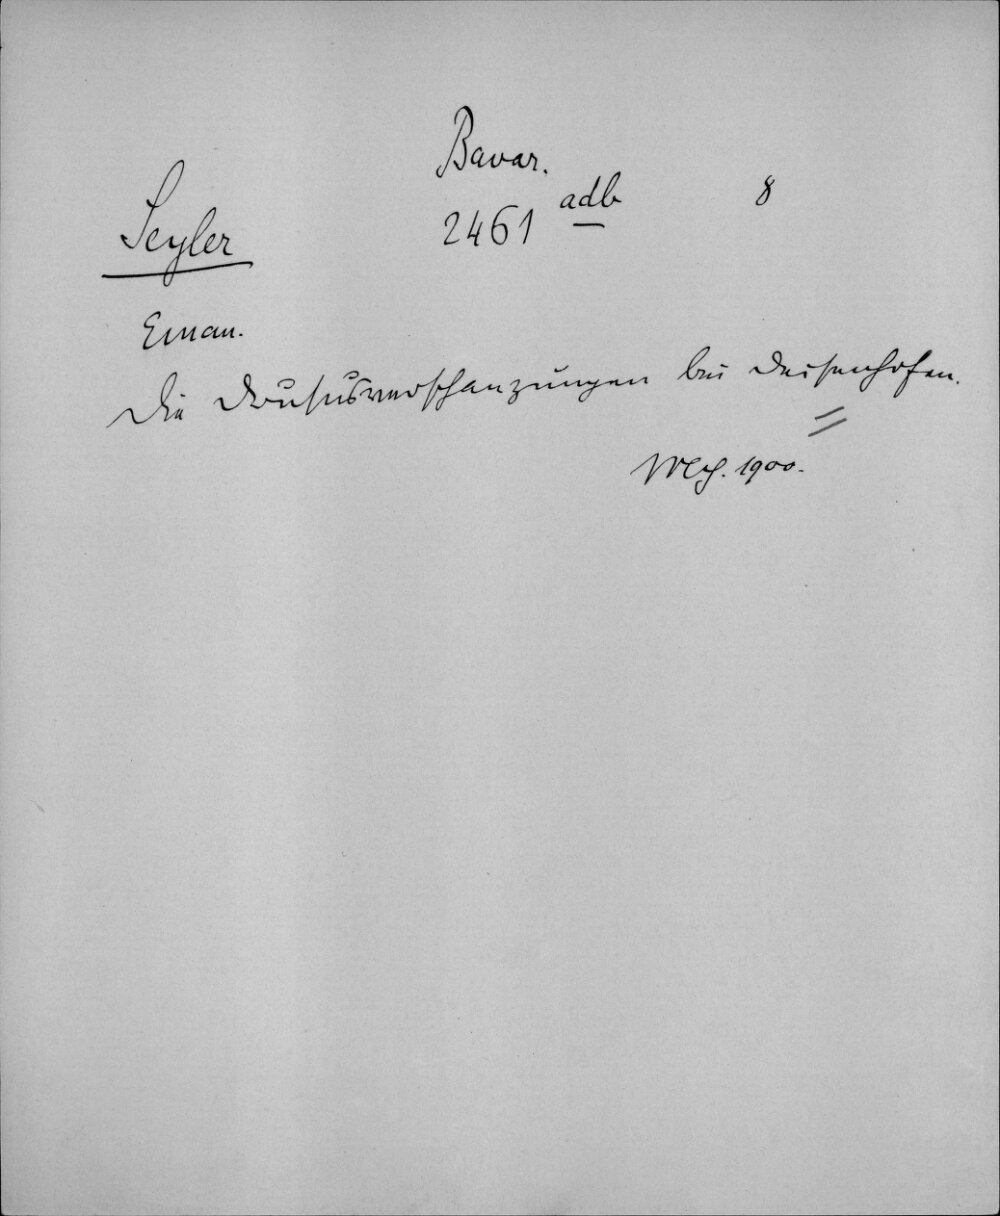 Bavar.
2461 adb 8
Seyler
Eman.
Die Drususverschanzungen bei Deisenhofen.
Mch. 1900.